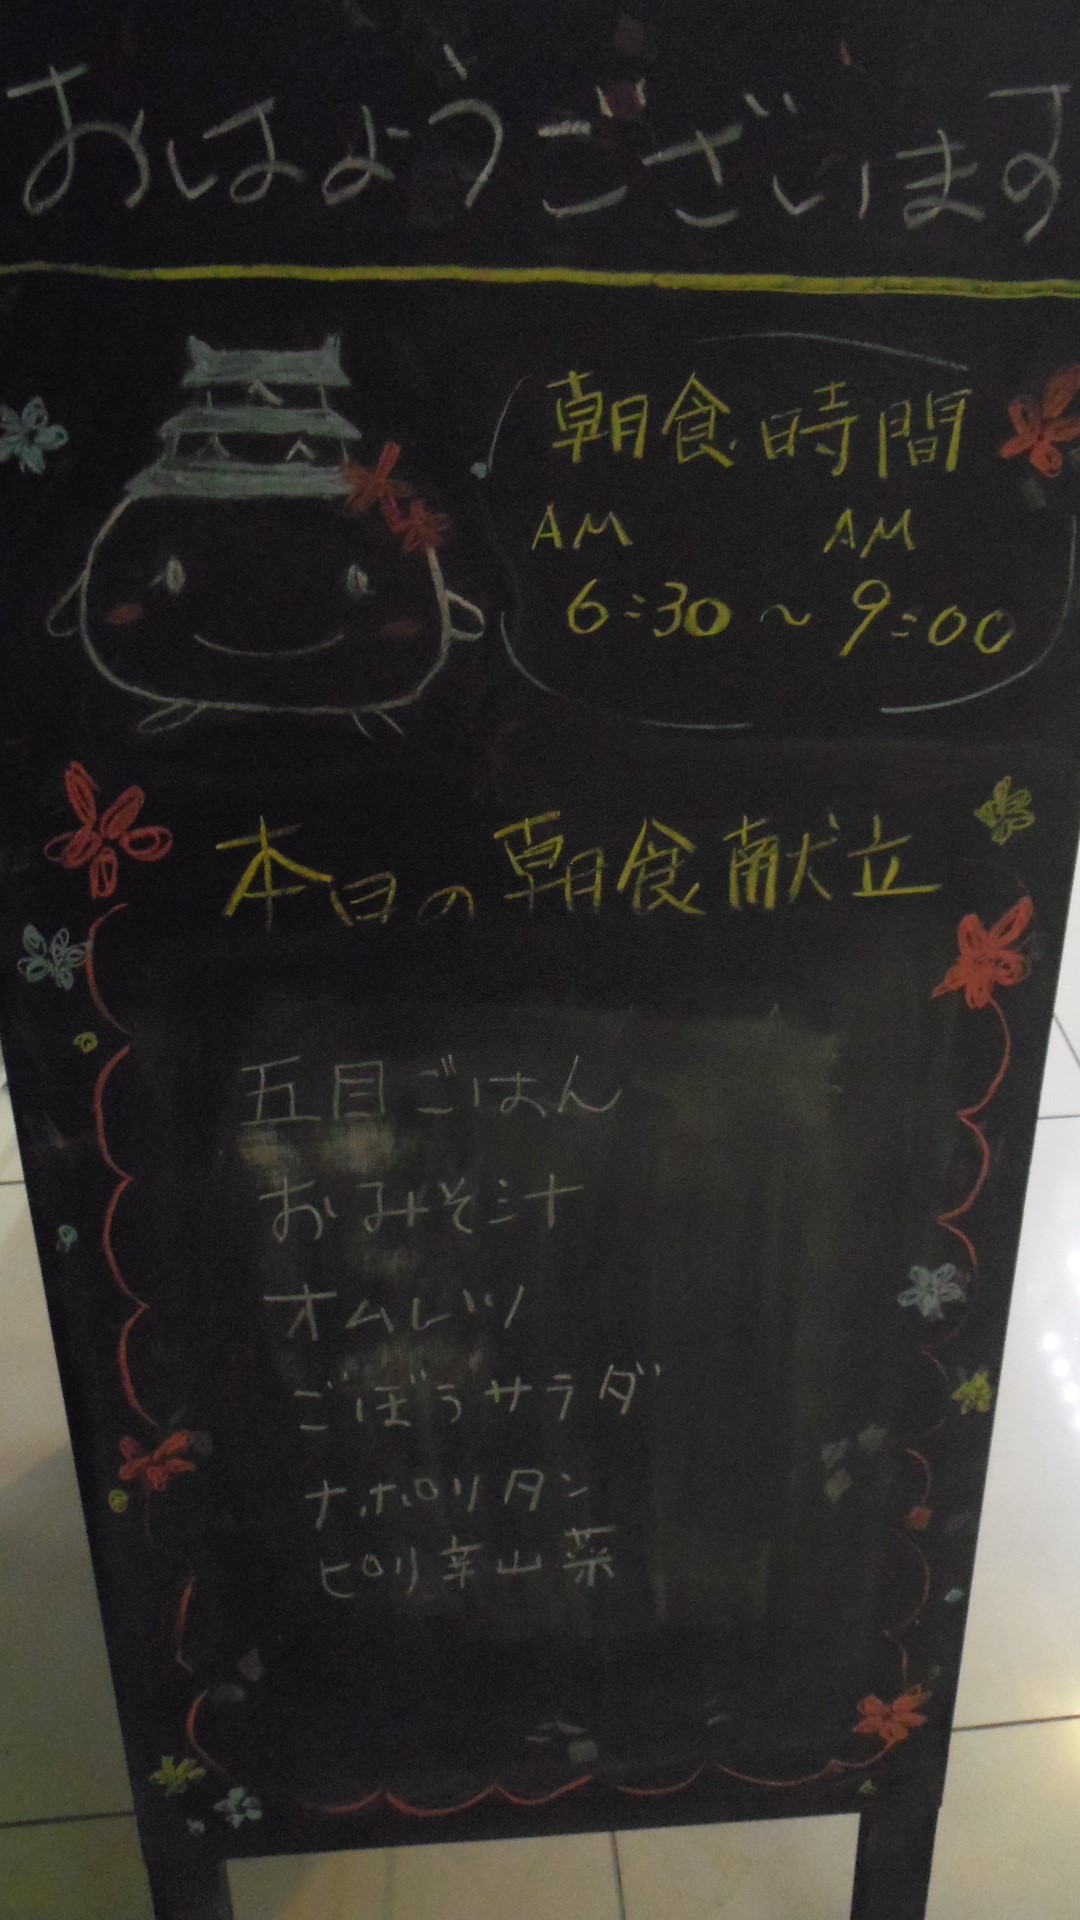 おはようございます
朝食時間
AM AM
6:30~9:00
本日の朝食献立
五目ごはん
おみそ汁
オムレツ
ごぼうサラダ
ナポリタン
ピリ辛山菜